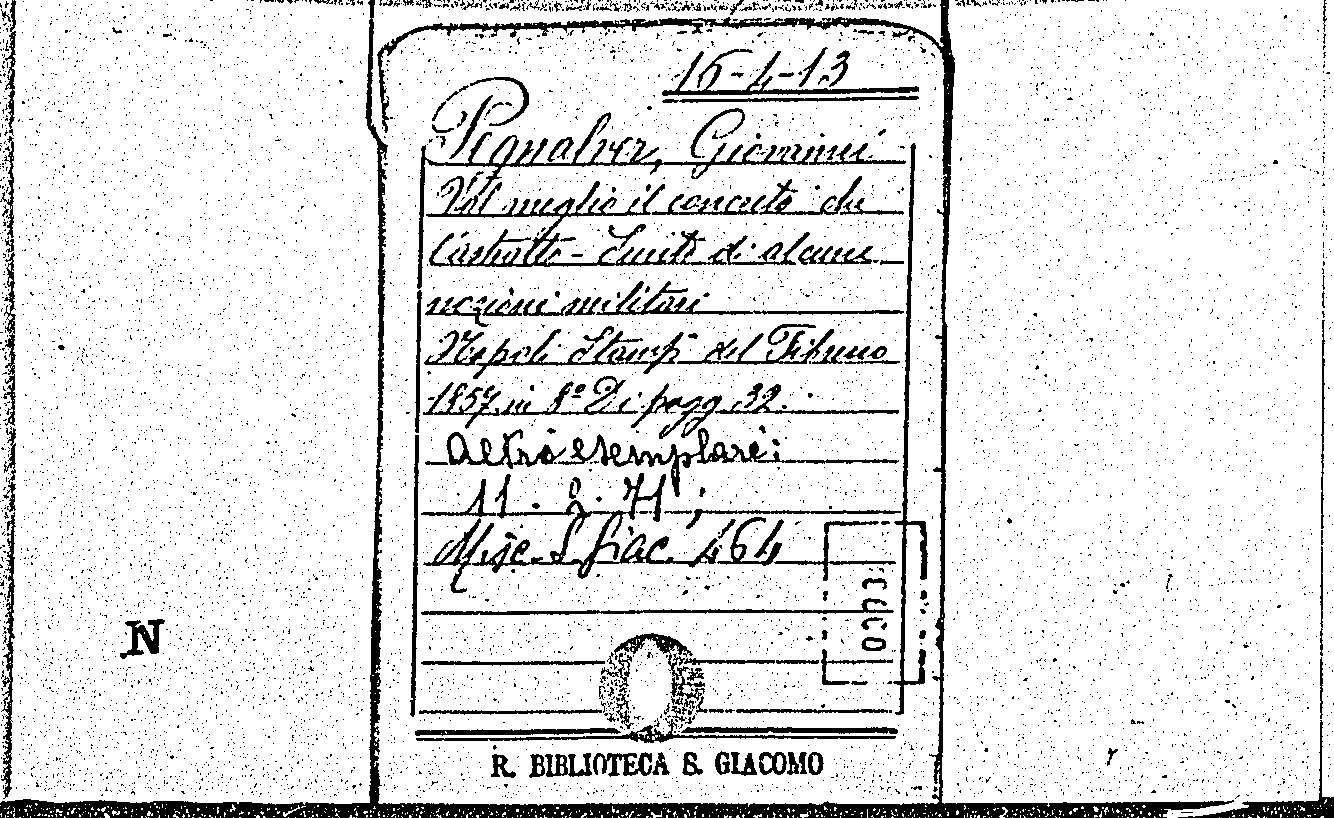 16-4-13
Pignalver, Giovanni
Val meglio il concreto che
l'astratto - Sunto di alcune
nozioni militari
Napoli Stamp del Fibreno
1857 in 8º Di pagg. 32.
Altro esemplare:
11. 2. 71;
Misc. S. Giac. 464
N
R. BIBLIOTECA S. GIACOMO